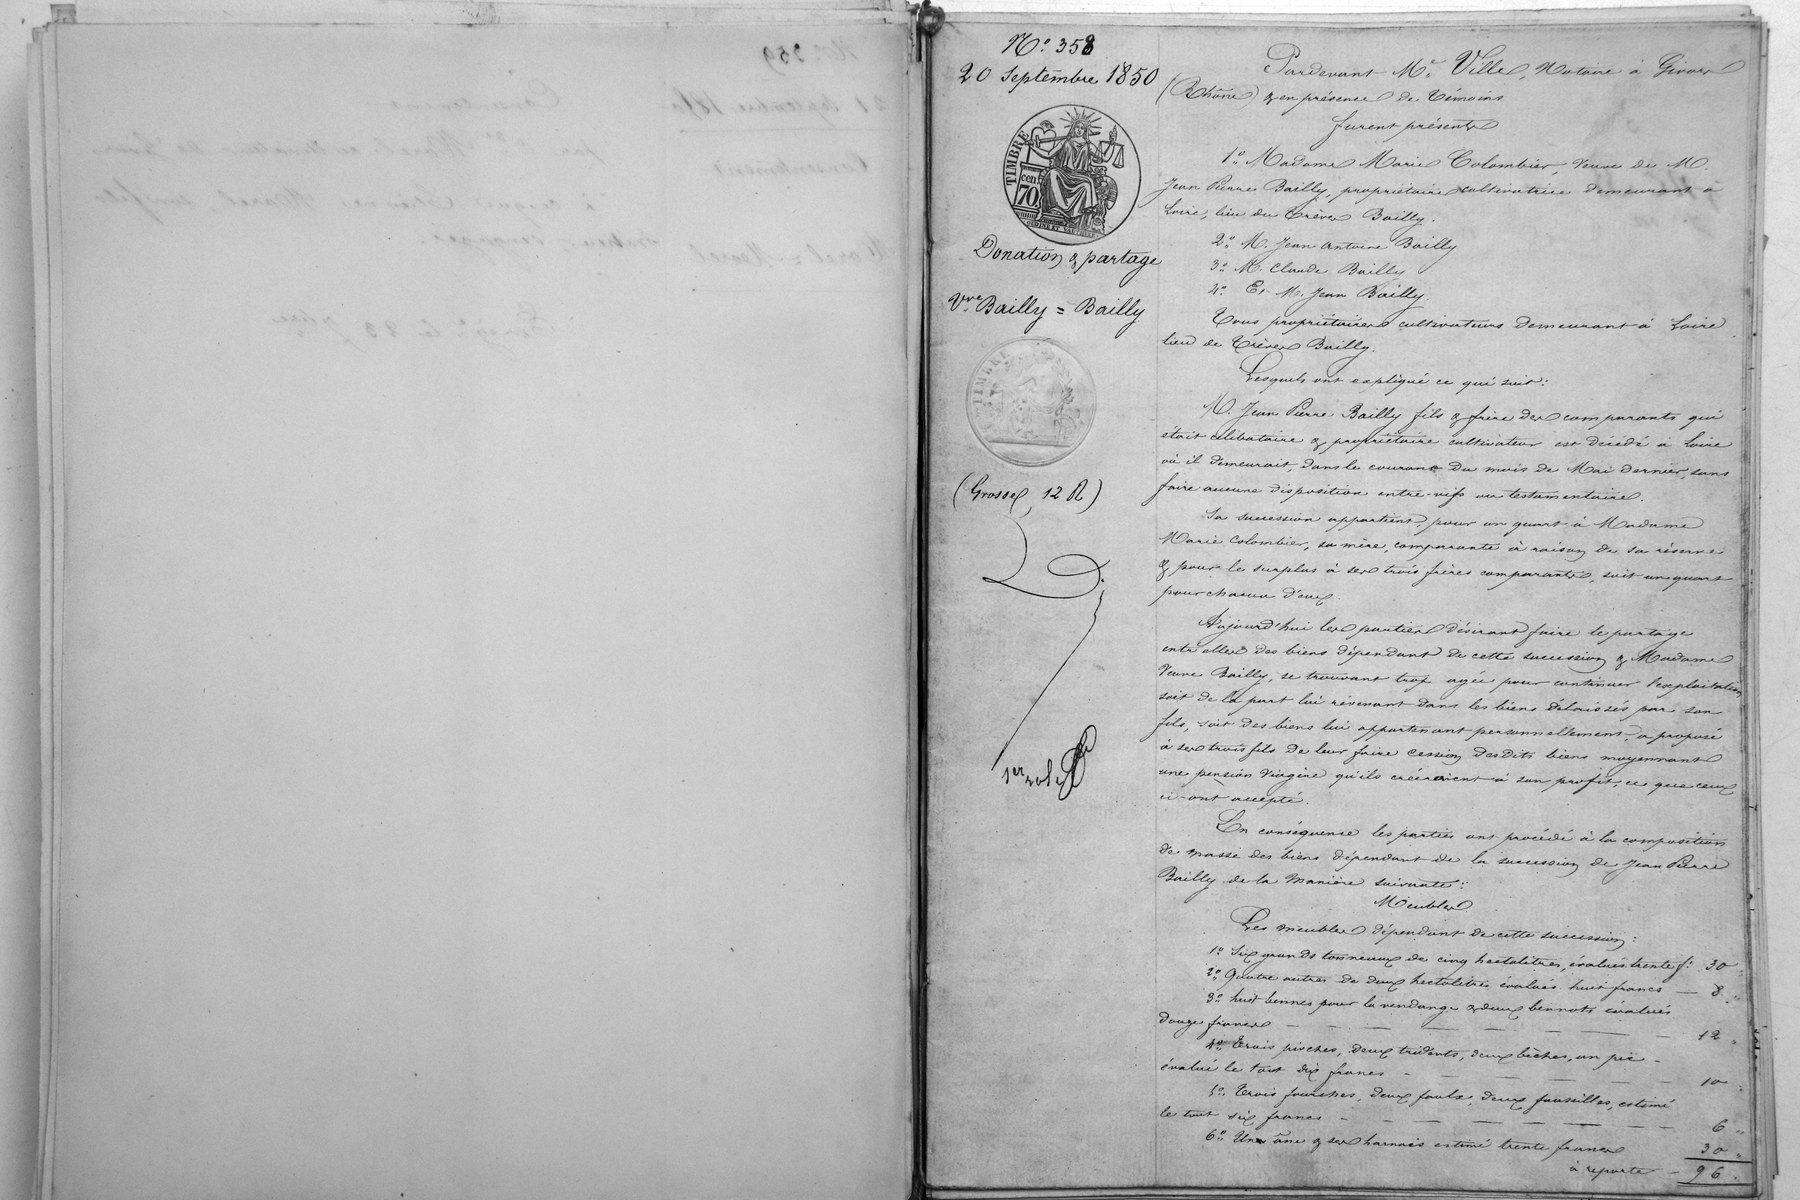 N.o 358
20 Septembre 1850
TIMBRE
cen.
70
Donation & partage
Vve Bailly = Bailly
TIMBRE
(Grosse, 12 R)
1er role
Pardevant Me Ville, Notaire à Givors
(Rhône) & en présence de témoins
furent présents
1o. Madame Marie Colombier, veuve de M.
Jean Pierre Bailly, propriétaire cultivatrice demeurant à
Loire, lieu du Trève Bailly.
2o. M. Jean Antoine Bailly
3o. M. Claude Bailly
4o. Et M. Jean Bailly
Tous propriétaires cultivateurs demeurant à Loire
lieu de Trèves Bailly.
Lesquels ont expliqué ce qui suit:
M. Jean Pierre Bailly fils & frère des comparants qui
était célibataire & propriétaire cultivateur est décédé à Loire
où il demeurait, dans le courant du mois de Mai dernier, sans
faire aucune disposition entre-vifs ou testamentaire.
Sa succession appartient, pour un quart à Madame
Marie Colombier, sa mère, comparante à raison de sa réserve
& pour le surplus à ses trois frères comparants, soit un quart
pour chacun d'eux.
Aujourd'hui les parties désirant faire le partage
entr'elles des biens dépendant de cette succession & Madame
Veuve Bailly, se trouvant trop agée pour continuer l'exploitation
soit de la part lui révenant dans les biens délaissés par son
fils, soit des biens lui appartenant personnellement, a proposé
à ses trois fils de leur faire cession desdits biens moyennant
une pension viagère qu'ils créeraient à son profit, ce que ceux
ci ont accepté.
En conséquence les parties ont procédé à la composition
de masse des biens dépendant de la succession de Jean Pierre
Bailly de la manière suivante:
Meubles
Les meubles dépendant de cette succession:
1o. Six grands tonneaux de cinq hectolitres, évalués trente f: 30 "
2o. Quatre autres de deux hectolitres évalués huit francs — 8 "
3o. huit bennes pour la vendange & deux bennots évalués
douze francs — — — — — — — 12 "
4o. Trois pioches, deux tridents, deux bèches, un pic —
évalué le tout dix francs — — — — — — 10 "
5o. Trois fourches, deux faulx, deux faussilles, estimé
le tout six francs — — — — — — — 6 "
6o. Un âne & ses harnais estimé trente francs 30 "
à reporter — 96 "